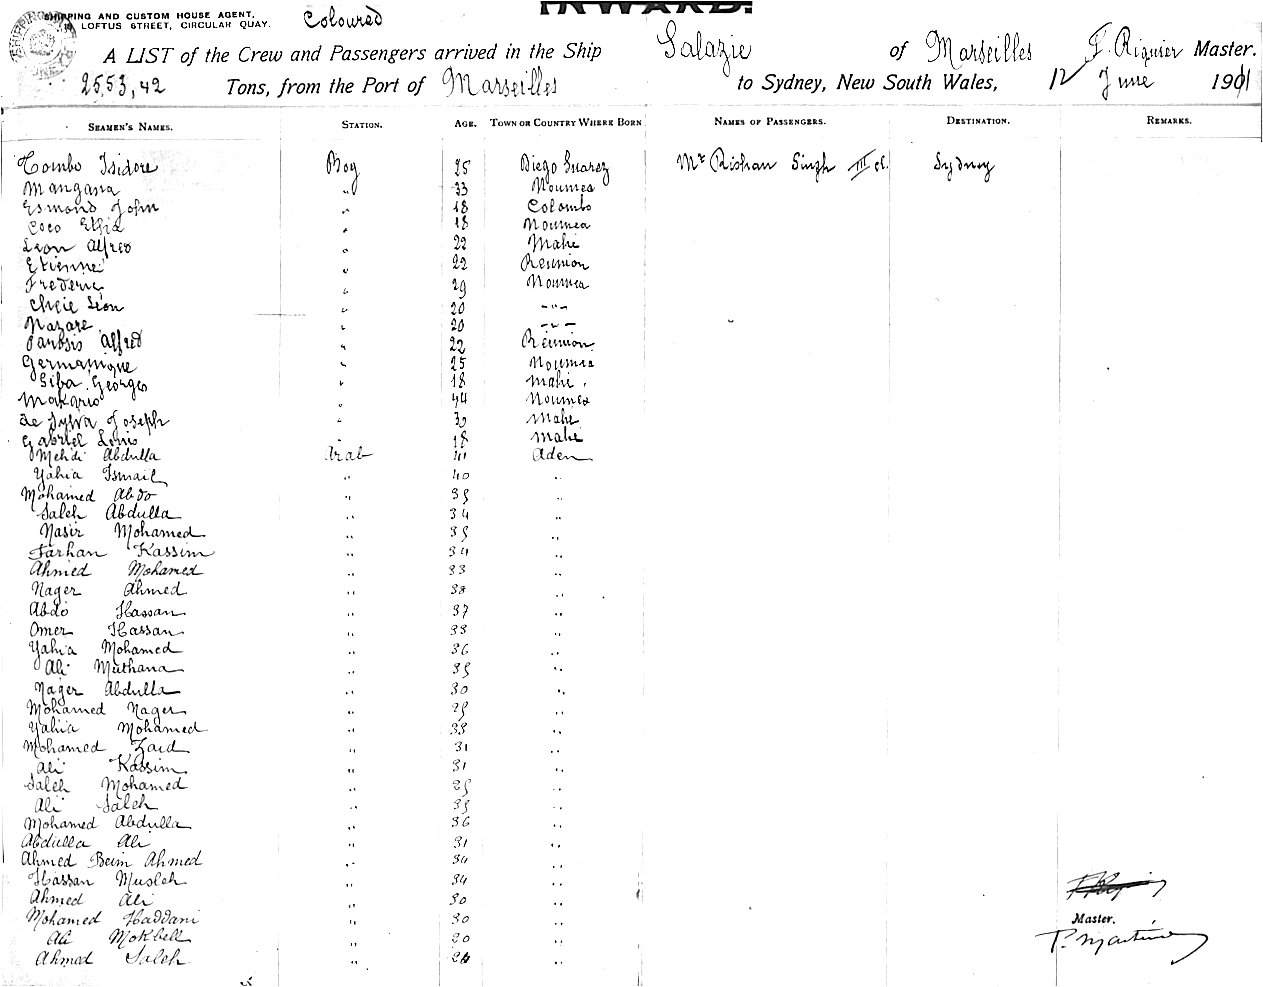 INWARD.
SHIPPING AND CUSTOM HOUSE AGENT,
LOFTUS STREET, CIRCULAR QUAY.
Coloured
A LIST of the Crew and Passengers arrived in the Ship Salazie of Marseilles F. Riquier Master.
2553,42 Tons, from the Port of Marseilles to Sydney, New South Wales, 12 June 1901
SEAMEN'S NAMES. STATION. AGE. TOWN OR COUNTRY WHERE BORN NAMES OF PASSENGERS. DESTINATION. REMARKS.
Combo Isidore Boy 25 Diego Suarez Mr Rishan Singh III cl. Sydney
Mangana " 33 Noumea
Esmond John " 18 Colombo
Coco " 18 Noumea
Leon Alfred " 22 Mahe
Etienne " 22 Reunion
Frederic " 29 Noumea
Leon " 20 - " -
Nazare " 20 - " -
Alfred " 22 Reunion
Germanique " 25 Noumea
Siba Georges " 18 Mahe
Makario " 44 Noumea
de Sylva Joseph " Mahe
Gabriel Louis " 18 Mahe
Mehdi Abdulla Arab 41 Aden
Yahia Ismail " 40 "
Mohamed Abdo " 35 "
Saleh Abdulla " 34 "
Nasir Mohamed " 35 "
Farhan Kassim " 34 "
Ahmed Mohamed " 33 "
Nager Ahmed " 32 "
Abdo Hassan " 37 "
Omer Hassan " 33 "
Yahia Mohamed " 36 "
Ali Muthana " 35 "
Nager Abdulla " 30 "
Mohamed Nager " 25 "
Yahia Mohamed " 33 "
Mohamed Zaid " 31 "
Ali Kassim " 31 "
Saleh Mohamed " 25 "
Ali Saleh " 35 "
Mohamed Abdulla " 36 "
Abdulla Ali " 31 "
Ahmed Beim Ahmed " 34 "
Hassan Musleh " 34 "
Ahmed Ali " 30 "
Mohamed Haddani " 30 "
Ali Mokbell " 20 "
Ahmed Saleh " 24 "
Master.
P. Martin